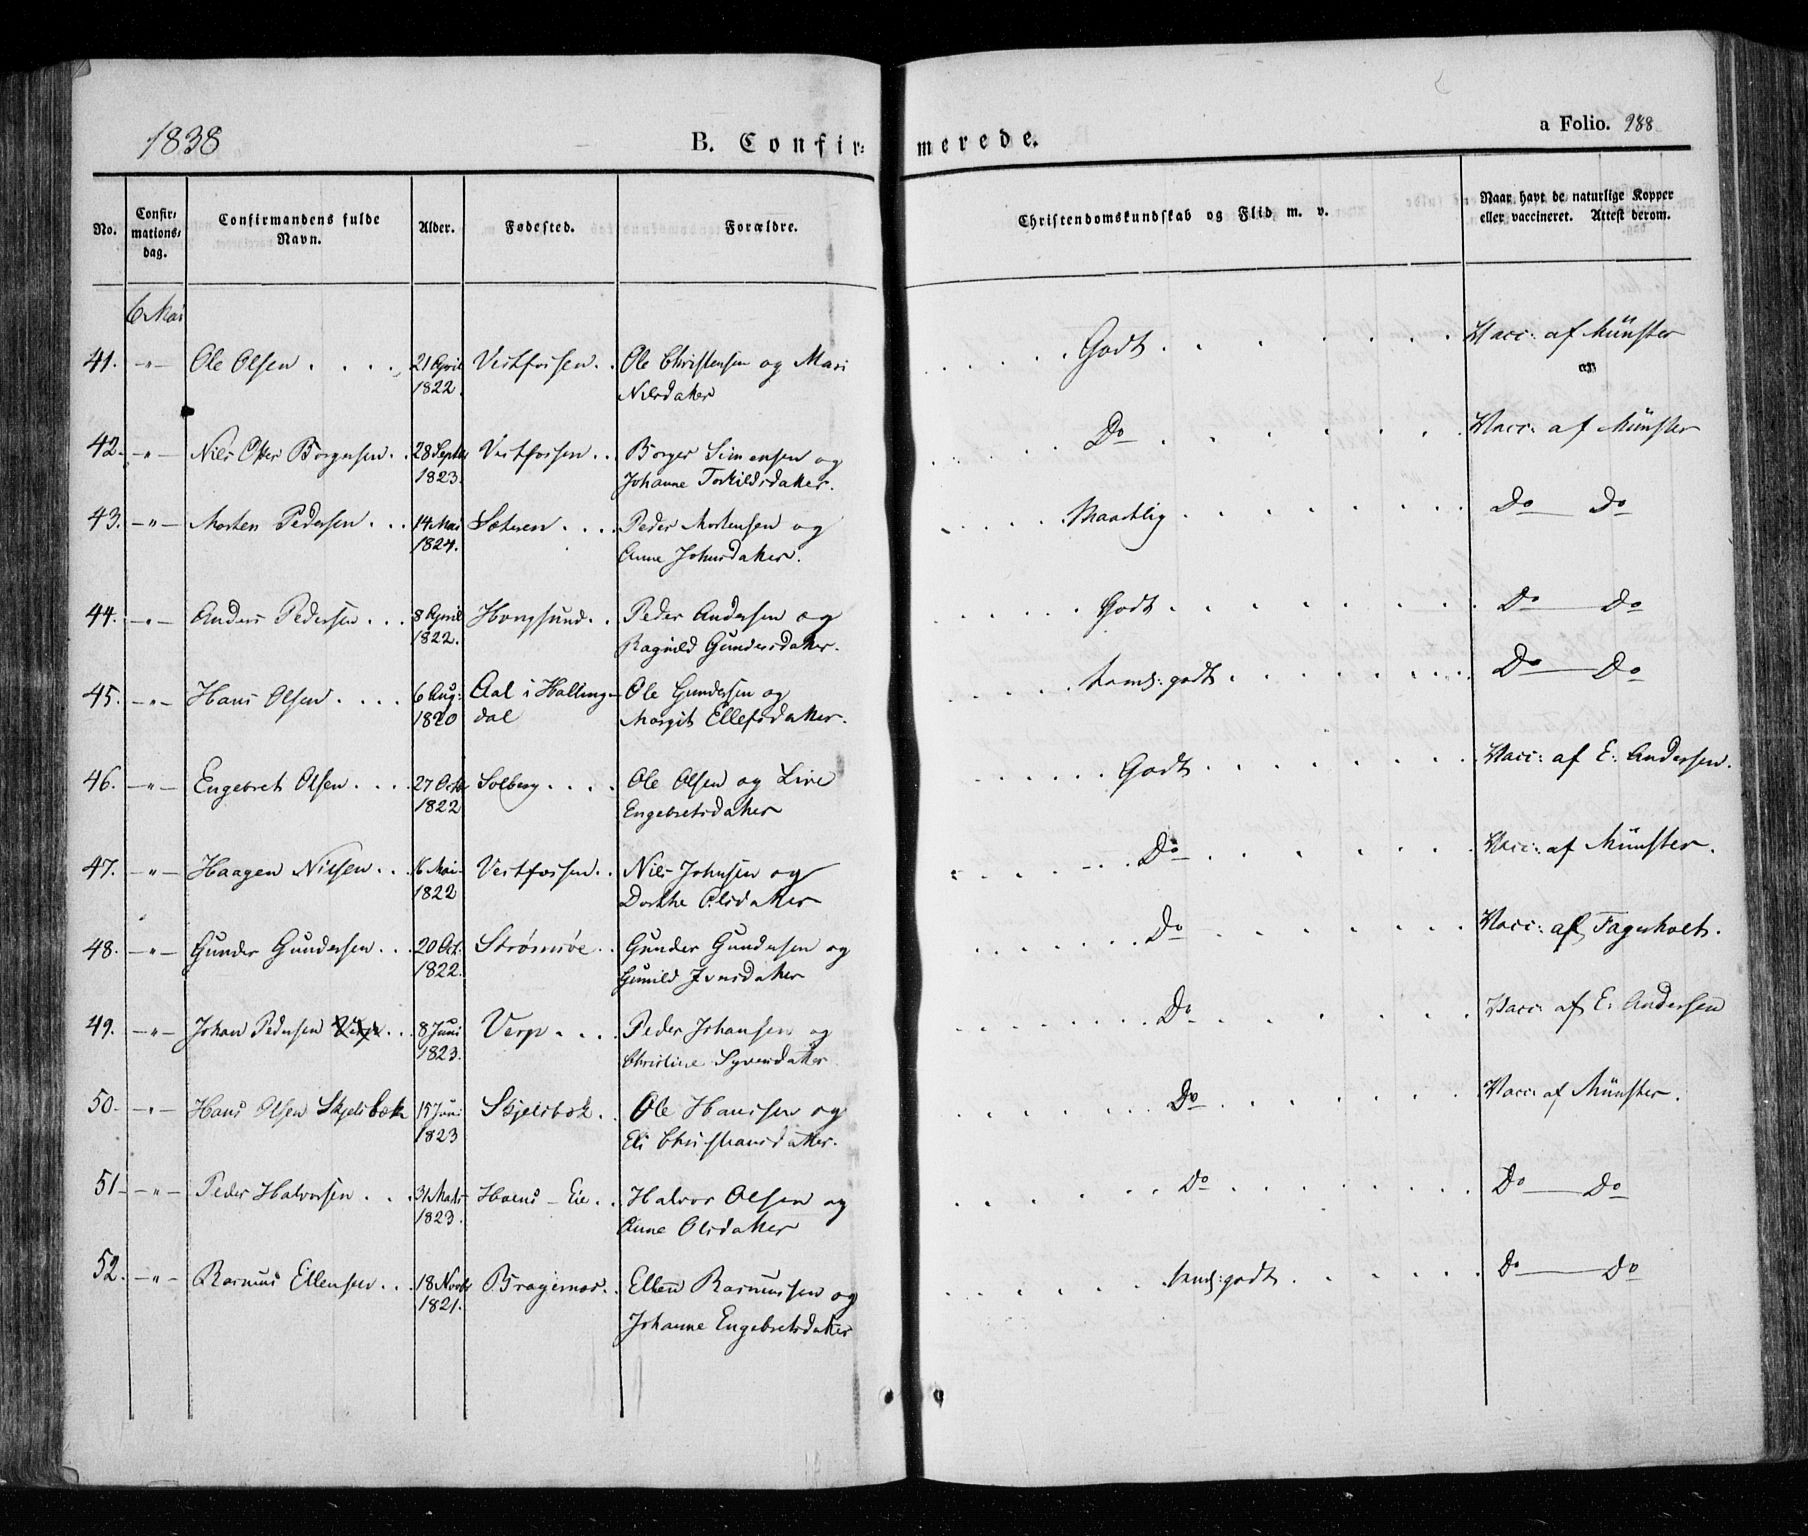 1838
B. Confir-
merede.
a Folio. 288
No.
Confir-
mations-
dag.
Confirmandens fulde
Navn.
Alder.
Fødested.
Forældre.
Christendomskundskab og Flid m. v.
Naar havt de naturlige Kopper
eller vaccineret. Attest derom.
6 Mai
41. -"- Ole Olsen . . . . 21 April Vestfossen . . Ole Christensen og Mari . . . . Godt . . . . . . . Vacc: af Münster
1822. Nilsdaker
42. -"- Nils Borgersen . . 28 Septbr Vestfossen . . Borger Simensen og . . . . Do . . . . . . Vacc: af Münster
1823. Johanne Torkildsdaker.
43. -"- Morten Pedersen . . . 14 Mai Sæteren . . . . Peder Mortensen og . . . . Maadelig . . . . . . . Do — Do
1824. Anne Johnsdaker.
44. -"- Anders Pedersen . . . 8 April Hongsund . . Peder Andersen og . . . . Godt . . . . . . . Do — Do
1822. Ragnild Gundersdaker.
45. -"- Hans Olsen . . . . 6 Aug: Aal i Halling- Ole Gundersen og . . . . tems: godt . . . . . . Do — Do
1820 dal Margit Ellefsdaker.
46. -"- Engebret Olsen . . . . 27 Octb Solberg . . . . Ole Olsen og Live . . . . . . Godt . . . . . . Vacc: af E: Andersen.
1822 Engebretsdaker
47. -"- Haagen Nilsen . . . 6 Mai Vestfossen . . Nils Johnsen og . . . . Do . . . . . . Vacc: af Münster.
1822 Dorthe Olsdaker
48. -"- Gunder Gundersen . . . 20 Oct. Strømsøe . . Gunder Gundersen og . . . . . . Do . . . . . . Vacc: af Fagerholt.
1822. Gunild Jonsdaker
49. -"- Johan Pedersen . . . 8 Juni Verp . . . . Peder Johansen og . . . . . . Do . . . . . Vacc: af E: Andersen
1823. Christine Syversdaker
50. -"- Hans Olsen Skjelsbæk 15 Juni Skjelsbæk . Ole Hanssen og . . . . . . Do . . . . . . Vacc: af Münster.
1823 Eli Christiansdaker.
51 -"- Peder Halvorsen . . . 31 Marts Hoens-Eie . . Halvor Olsen og . . . . . . Do . . . . . . . Do — Do
1823. Anne Olsdaker
52. -"- Rasmus Ellensen . . . 18 Novbr Bragernæs . . Ellen Rasmussen og . . . . . . tems: godt . . . . . Do — Do
1821. Johanne Engebretsdaker